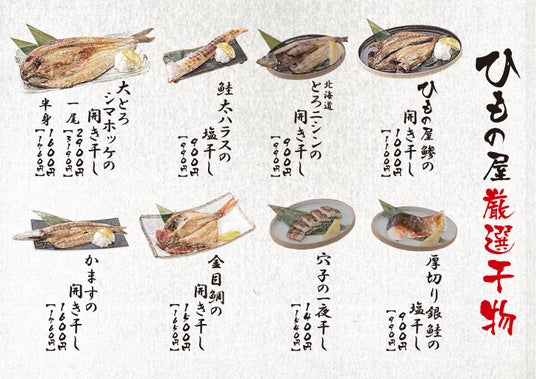 ひもの屋 厳選干物
ひもの屋 鯵の
開き干し
1000円
【1100円】
北海道
とろニシンの
開き干し
900円
【990円】
鮭太ハラスの
塩干し
900円
【990円】
大とろ
シマホッケの
開き干し
一尾 2900円
【3190円】
半身 1600円
【1760円】
厚切り銀鮭の
塩干し
900円
【990円】
穴子の一夜干し
1400円
【1540円】
金目鯛の
開き干し
1500円
【1650円】
かますの
開き干し
1600円
【1760円】